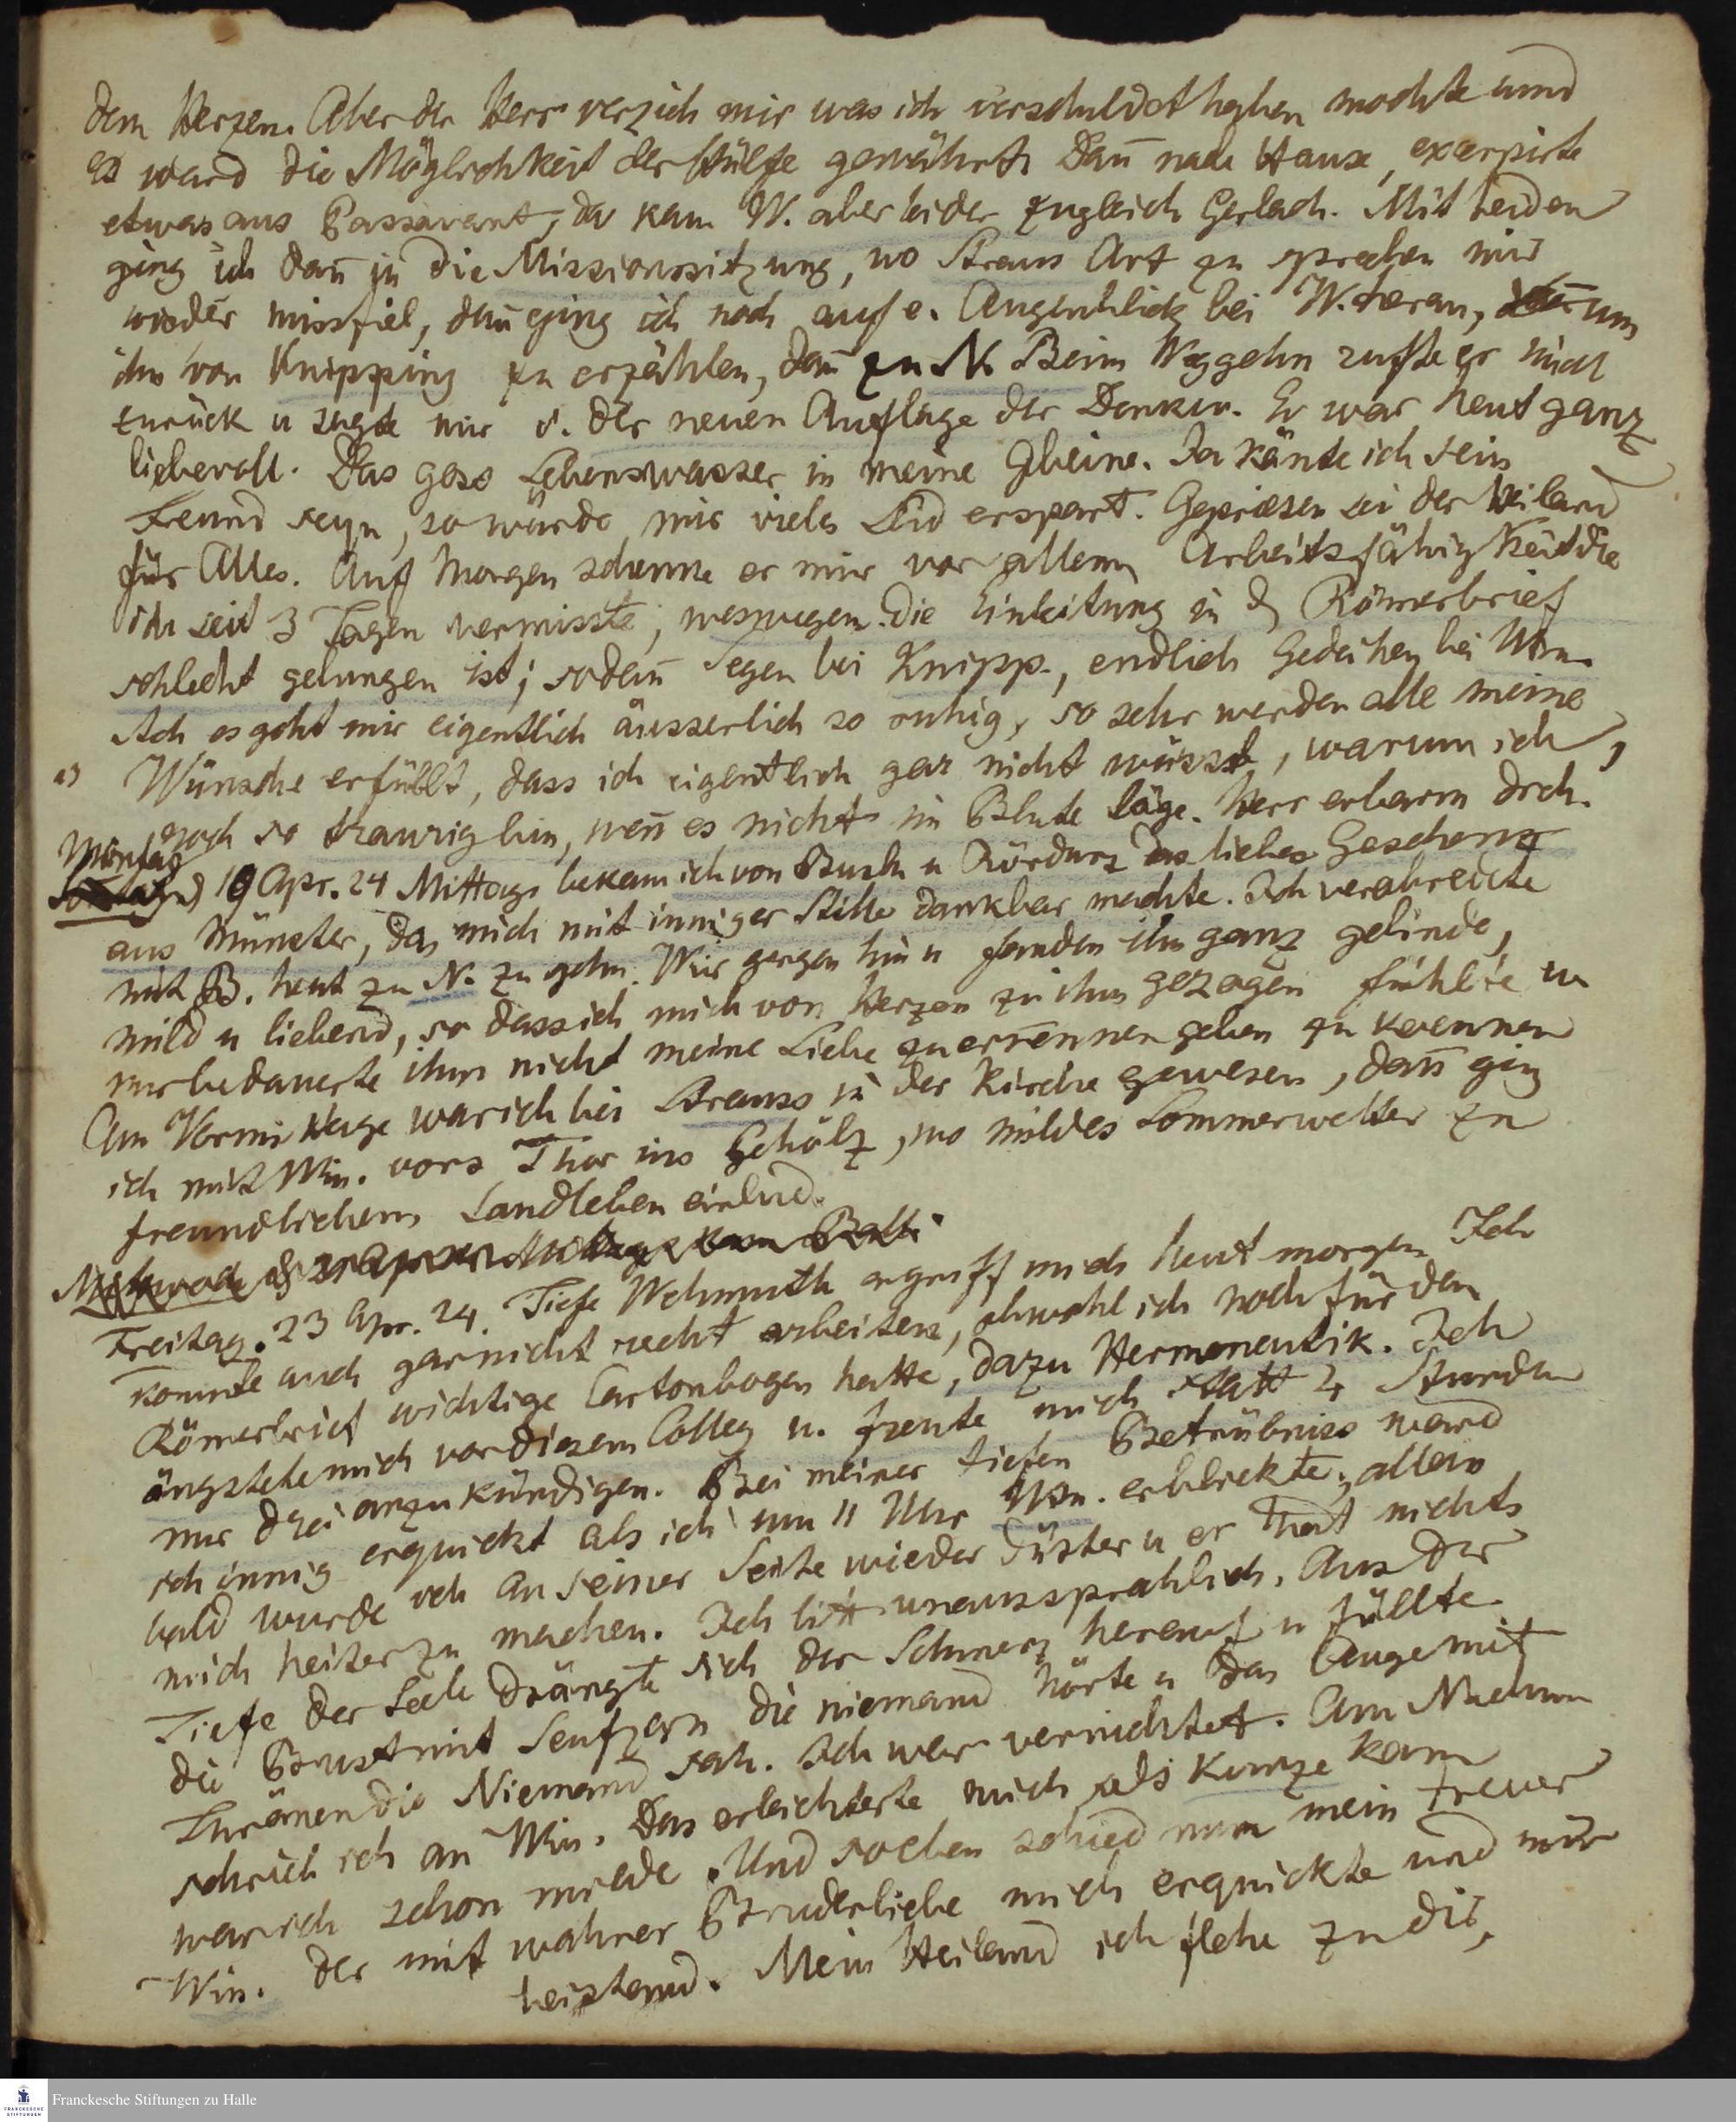 dem Herzen. Aber der Herr verzieh mir was ich verschuldet haben mochte und
es ward die Möglichkeit der Hülfe gewährt. Dan̄ nach Hause, excerpirte
etwas aus Passavant, da kam W. aber leider zugleich Gerlach. Mit beiden
ging ich dan̄ in die Missionssitzung, wo Straus Art zu sprechen mir
wieder missfiel, dan̄ ging ich noch auf e. Augenblick bei W. heran, um
ihm von Knipping zu erzählen, dan̄ zu N. Beim Weggehn rufte er mich
zurück u sagte mir v. der neuen Auflage der Denkw. Er war heut ganz
liebevoll. Das goss Lebenswasser in meine Gbeine. Ja kön̄te ich sein
Freund seyn, so würde mir vieles Leid erspart. Gepriesen sei der Heiland
für Alles. Auf Morgen schenke er mir vor allem Arbeitsfähigkeit die
ich seit 3 Tagen vermisste, weswegen die Einleitung in d Römerbrief
schlecht gelungen ist; sodan̄ Segen bei Knipp., endlich Gedeihen bei Win.
Ach es geht mir eigentlich äusserlich so ruhig, so sehr werden alle meine
Wünsche erfüllt, dass ich eigentlich gar nicht wüsste, warum ich
noch so traurig bin, wen̄ es nicht im Blute läge. Herr erbarm dich.
Montag
19 Apr. 24 Mittags bekam ich von u das liebe Geschenk
aus Münster, das mich mit inniger Stille dankbar machte. Ich verabredete
mit B. heut zu N. zu gehn. Wir gingen hin u fanden ihn ganz gelinde,
mild u liebend, so dass ich mich von Herzen zu ihm gezogen fühlte u
nur bedauerte ihm nicht meine Liebe zu erkennen geben zu können
Am Vormittage war ich bei Strauss in der Kirche gewesen, dan̄ ging
ich mit Win. vors Thor ins Gehölz, wo mildes Sommerwetter zu
freundlichem Landleben einlud.
Mittwoch
Freitag. 23 Apr. 24. Tiefe Wehmuth ergriff mich heut morgen Ich
konnte auch gar nicht recht arbeiten, obwohl ich noch für den
Römerbrief wichtige Cartonbogen hatte, dazu Hermeneutik. Ich
ängstete mich vor diesem Colleg u. freute mich statt 4 Stunden
nur drei anzukündigen. Bei meiner tiefen Betrübniss ward
ich innig erquickt als ich um 11 Uhr Win. erblickte, allein
bald wurde ich an seiner Seite wieder düster u er that nichts
mich heiter zu machen. Ich litt unaussprechlich. Aus der
Tiefe der Seele drängte sich der Schmerz herauf u füllte
die Brust mit Seufzern die niemand hörte u das Auge mit
Thränen die Niemand sah. Ich war vernichtet. Am Nachm
schrieb ich an Win. Das erleichterte mich, als Kunze kam
war ich schon müde. Und soeben schied nun mein treuer
Win. der mit wahrer Bruderliebe mich erquickte und mir
beistand. Mein Heiland ich flehe zu dir,
Franckesche Stiftungen zu Halle
FRANCKESCHE
STIFTUNGEN